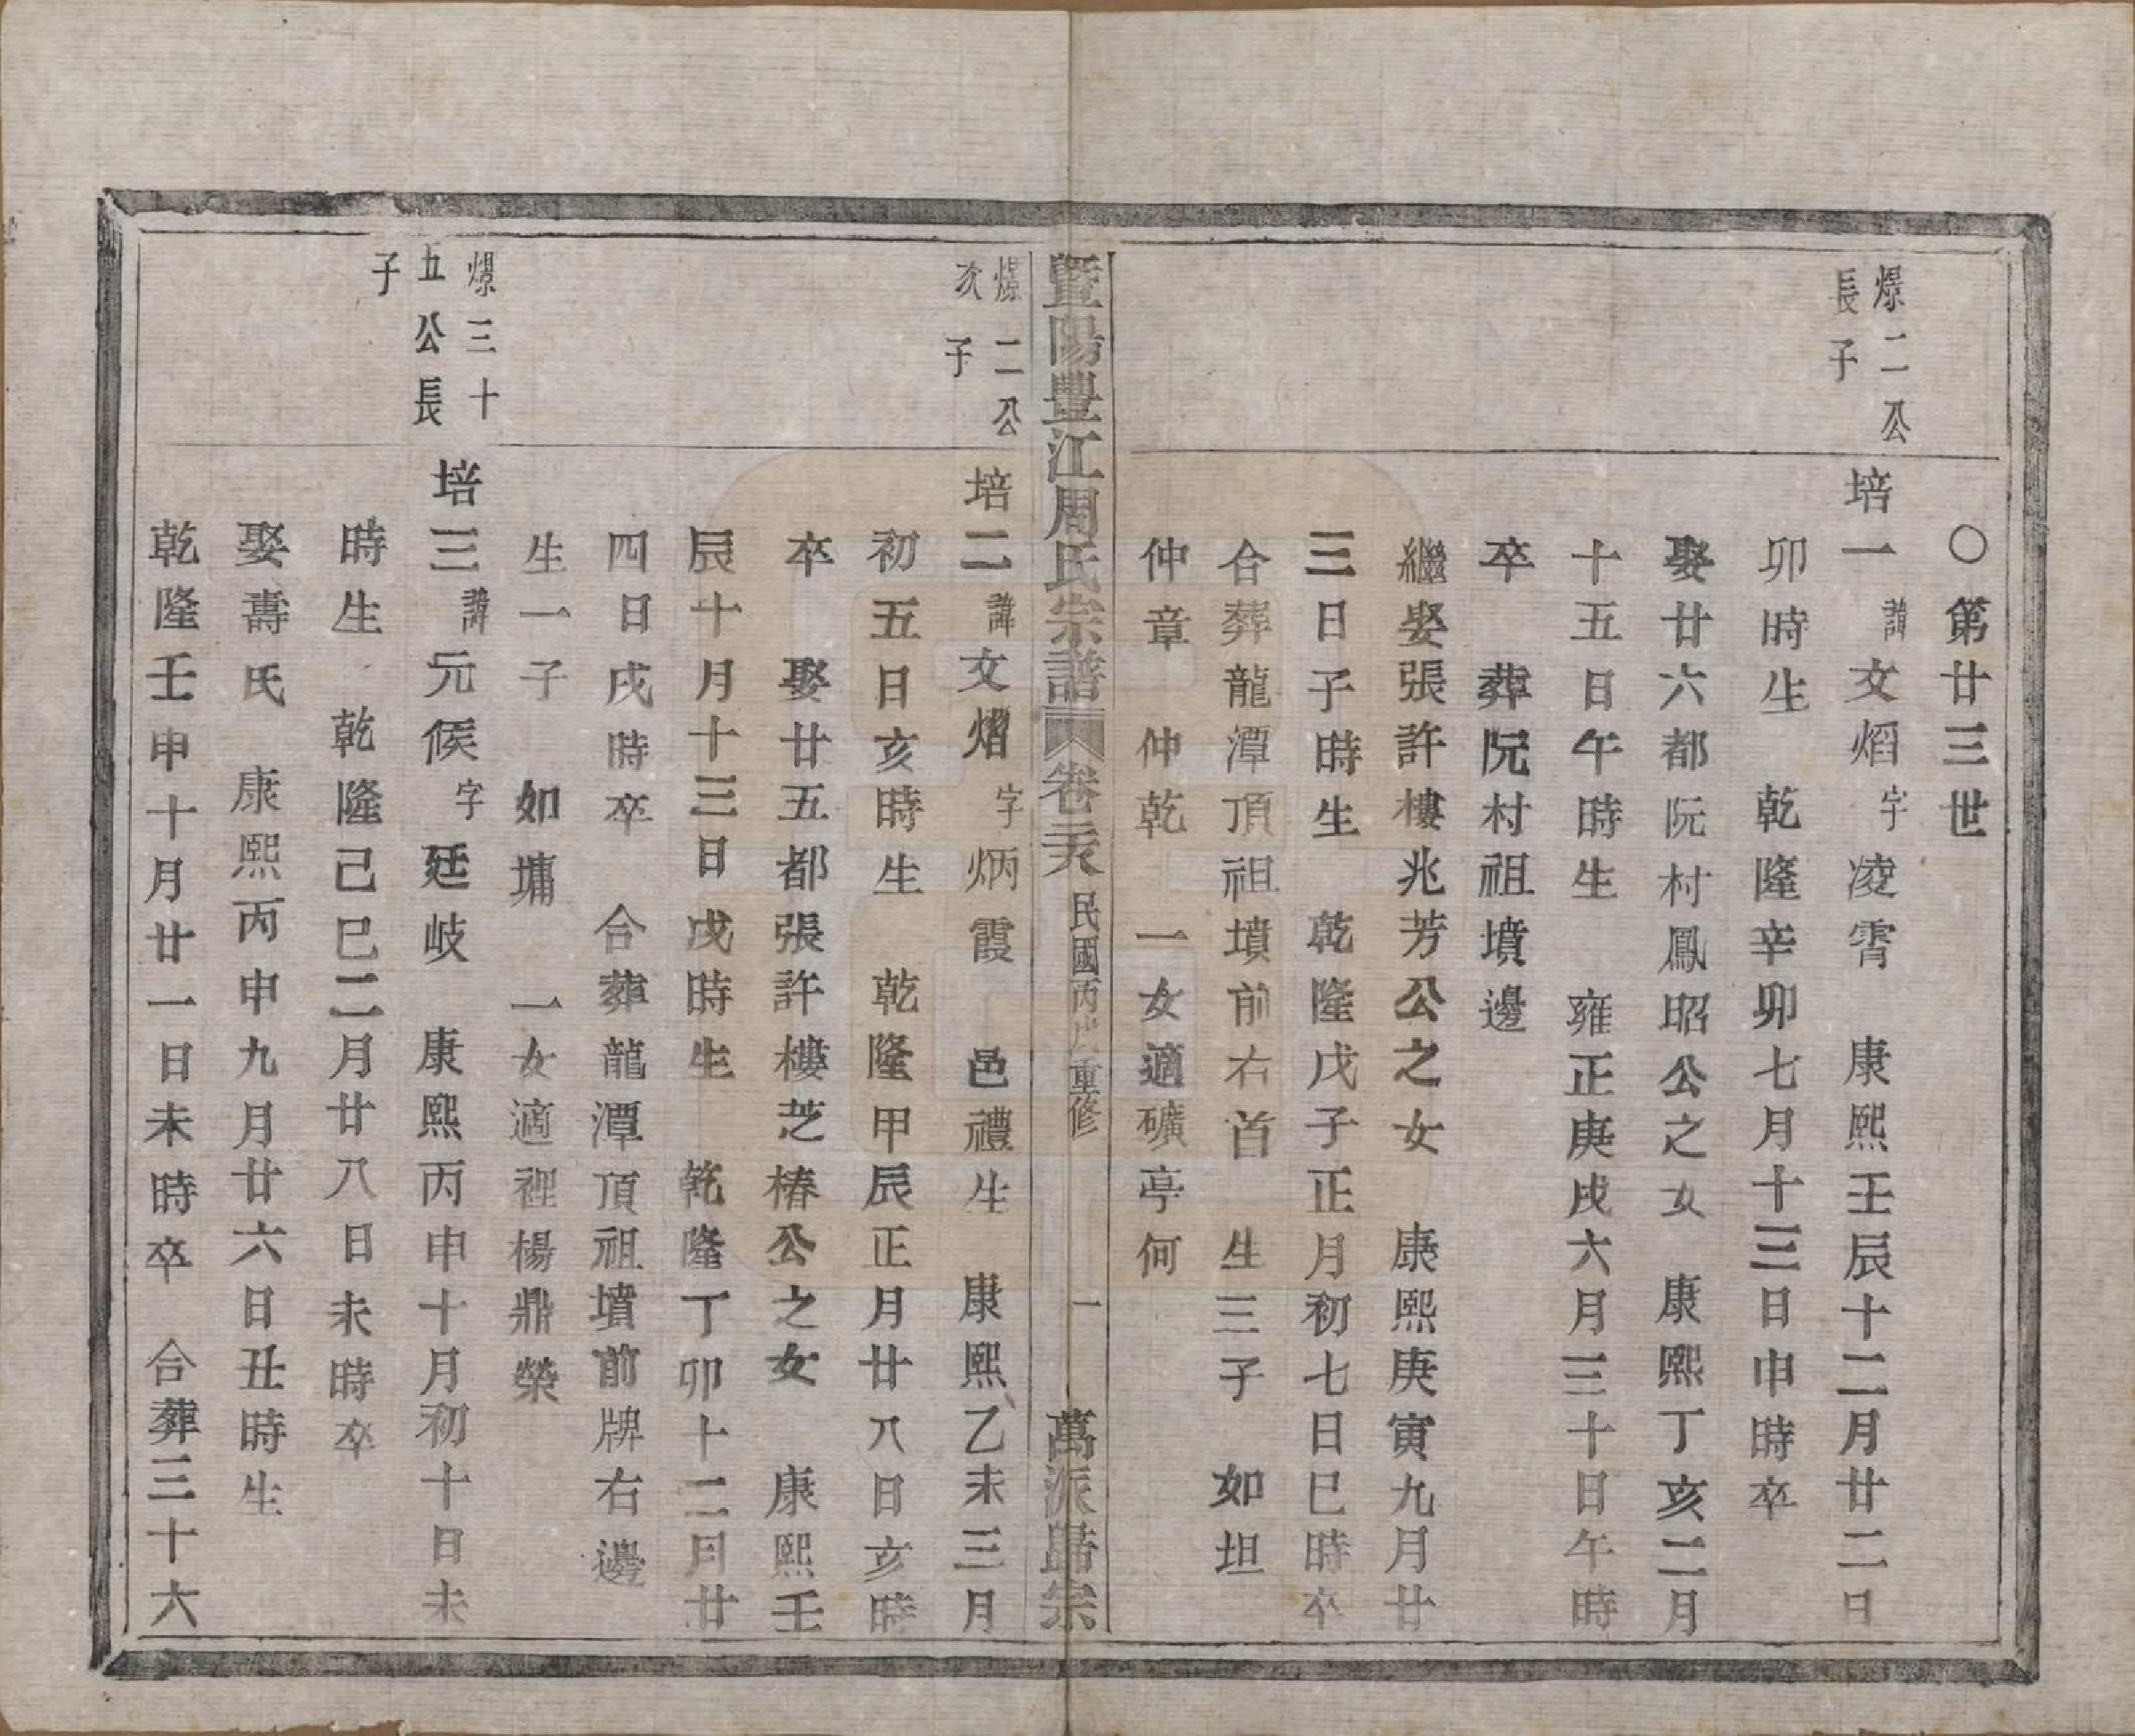 〇第廿三世
爆二公
長子
培一諱文熖字凌霄　康熙壬辰十二月廿二日
卯時生　乾隆辛卯七月十三日申時卒
娶廿六都阮村鳳昭公之女　康熙丁亥二月
十五日午時生　雍正庚戌六月三十日午時
卒　葬阮村祖墳邊
繼娶張許樓兆芳公之女　康熙庚寅九月廿
三日子時生　乾隆戊子正月初七日巳時卒
合葬龍潭頂祖墳前右首　生三子　如坦
仲章　仲乾　一女適礦亭何
暨陽豐江周氏宗譜　卷二六　民國丙戌重修　一　萬派歸宗
爆二公
次子
培二諱文熠字炳霞　邑禮生　康熙乙未三月
初五日亥時生　乾隆甲辰正月廿八日亥時
卒　娶廿五都張許樓芝椿公之女　康熙壬
辰十月十三日戌時生　乾隆丁卯十二月廿
四日戌時卒　合葬龍潭頂祖墳前牌右邊
生一子　如墉　一女適裡楊鼎榮
爆三十
五公長
子
培三諱元候字廷岐　康熙丙申十月初十日未
時生　乾隆己巳二月廿八日未時卒
娶壽氏　康熙丙申九月廿六日丑時生
乾隆壬申十月廿一日未時卒　合葬三十六